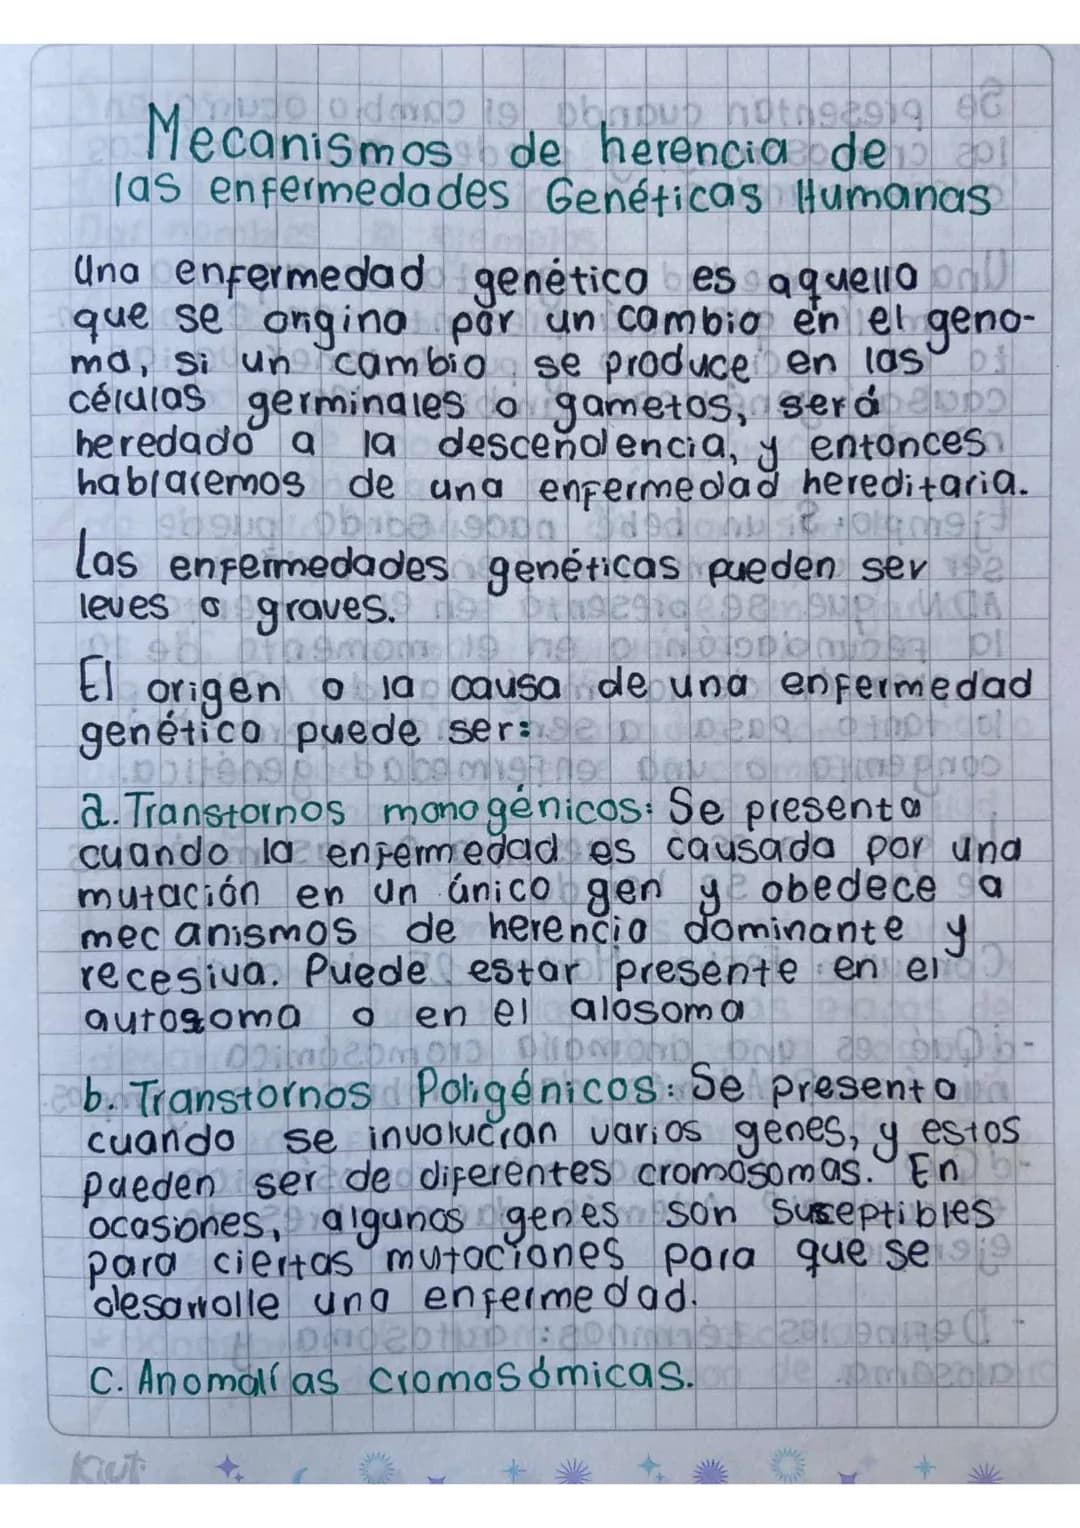 Mecanismos de herencia de
las enfermedades Genéticas Humanas
Una enfermedad genética es aquella
que se origina por un cambio en el geno-
ma, si un cambio se produce en las
células germinales o gametos, será
heredado a la descendencia, y entonces
hablaremos de una enfermedad hereditaria.
Las enfermedades genéticas pueden ser
leves o graves.
El origen o la causa de una enfermedad
genética puede ser:
a. Transtornos monogénicos: Se presenta
cuando la enfermedad es causada por una
mutación en un único gen y obedece a
mecanismos de herencia dominante y
recesiva. Puede estar presente en el
autosoma o en el alosoma
b. Transtornos Poligénicos: Se presenta
cuando se involucran varios genes, y estos
pueden ser de diferentes cromosomas. En
ocasiones, algunos genes son susceptibles
para ciertas mutaciones para que se
desarrolle una enfermedad.
c. Anomalías cromosómicas.
Kiut